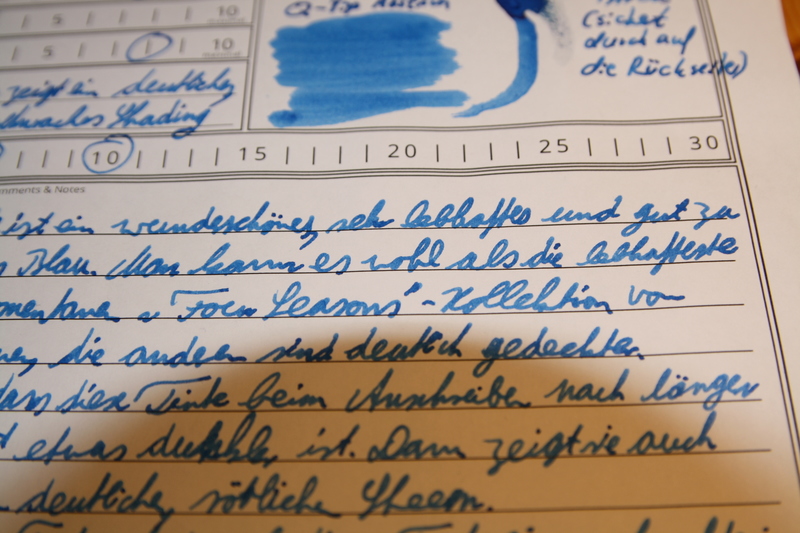 5 10
Q-Tip
5 10
(sichet
durch auf
die Rückseite)
zeigt ein deutliches
Shading
10 15 20 25 30
mments & Notes
ist ein wunderschönes, sehr lebhaftes und gut zu
Blau. Man kann es wohl als die lebhafteste
momentanen "Four Seasons"-Kollektion von
die anderen sind deutlich gedeckter.
dass diese Tinte beim Anschreiben nach länger
etwas dunkler ist. Dann zeigt sie auch
deutlichen rötlichen Sheen.